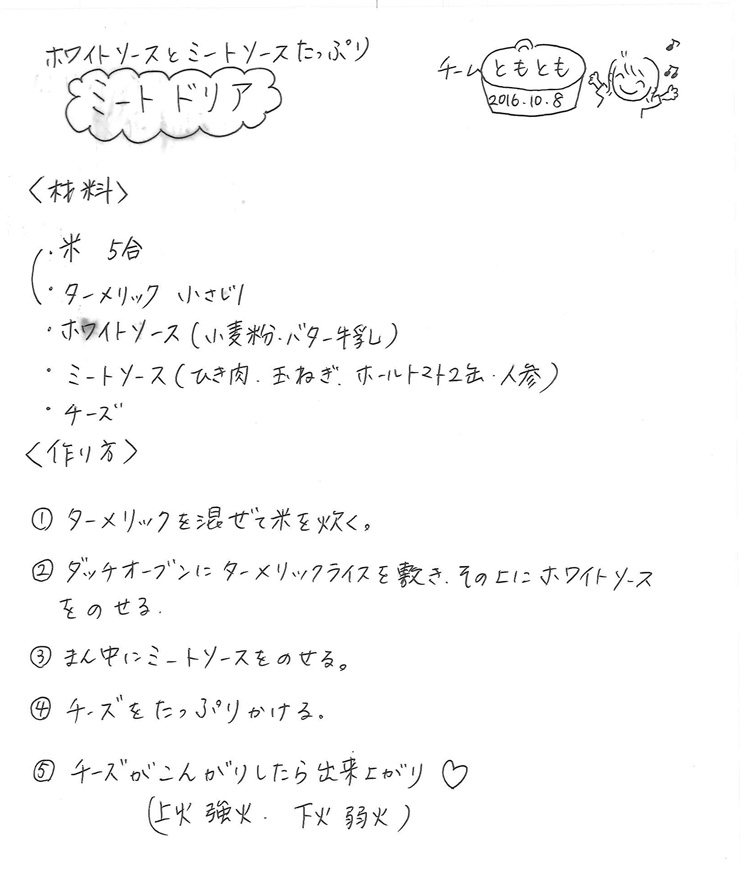 ホワイトソースとミートソースたっぷり
ミートドリア
チームともとも
2016.10.8
〈材料〉
・米 5合
・ターメリック 小さじ1
・ホワイトソース(小麦粉・バター牛乳)
・ミートソース(ひき肉.玉ねぎ.ホールトマト2缶・人参)
・チーズ
〈作り方〉
① ターメリックを混ぜて米を炊く。
② ダッチオーブンにターメリックライスを敷き.その上にホワイトソース
をのせる.
③ まん中にミートソースをのせる。
④ チーズをたっぷりかける。
⑤ チーズがこんがりしたら出来上がり♡
(上火 強火. 下火 弱火)